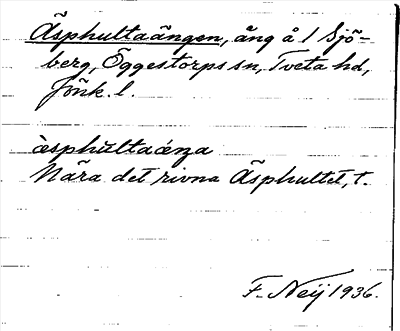 Äsphultaängen, äng å 1 Sjö-
berg, Öggestorps sn, Tveta hd,
Jönk. l.
èsphu̇ltaéŋa
Nära det rivna Äsphultet, t.
F. Neij 1936.